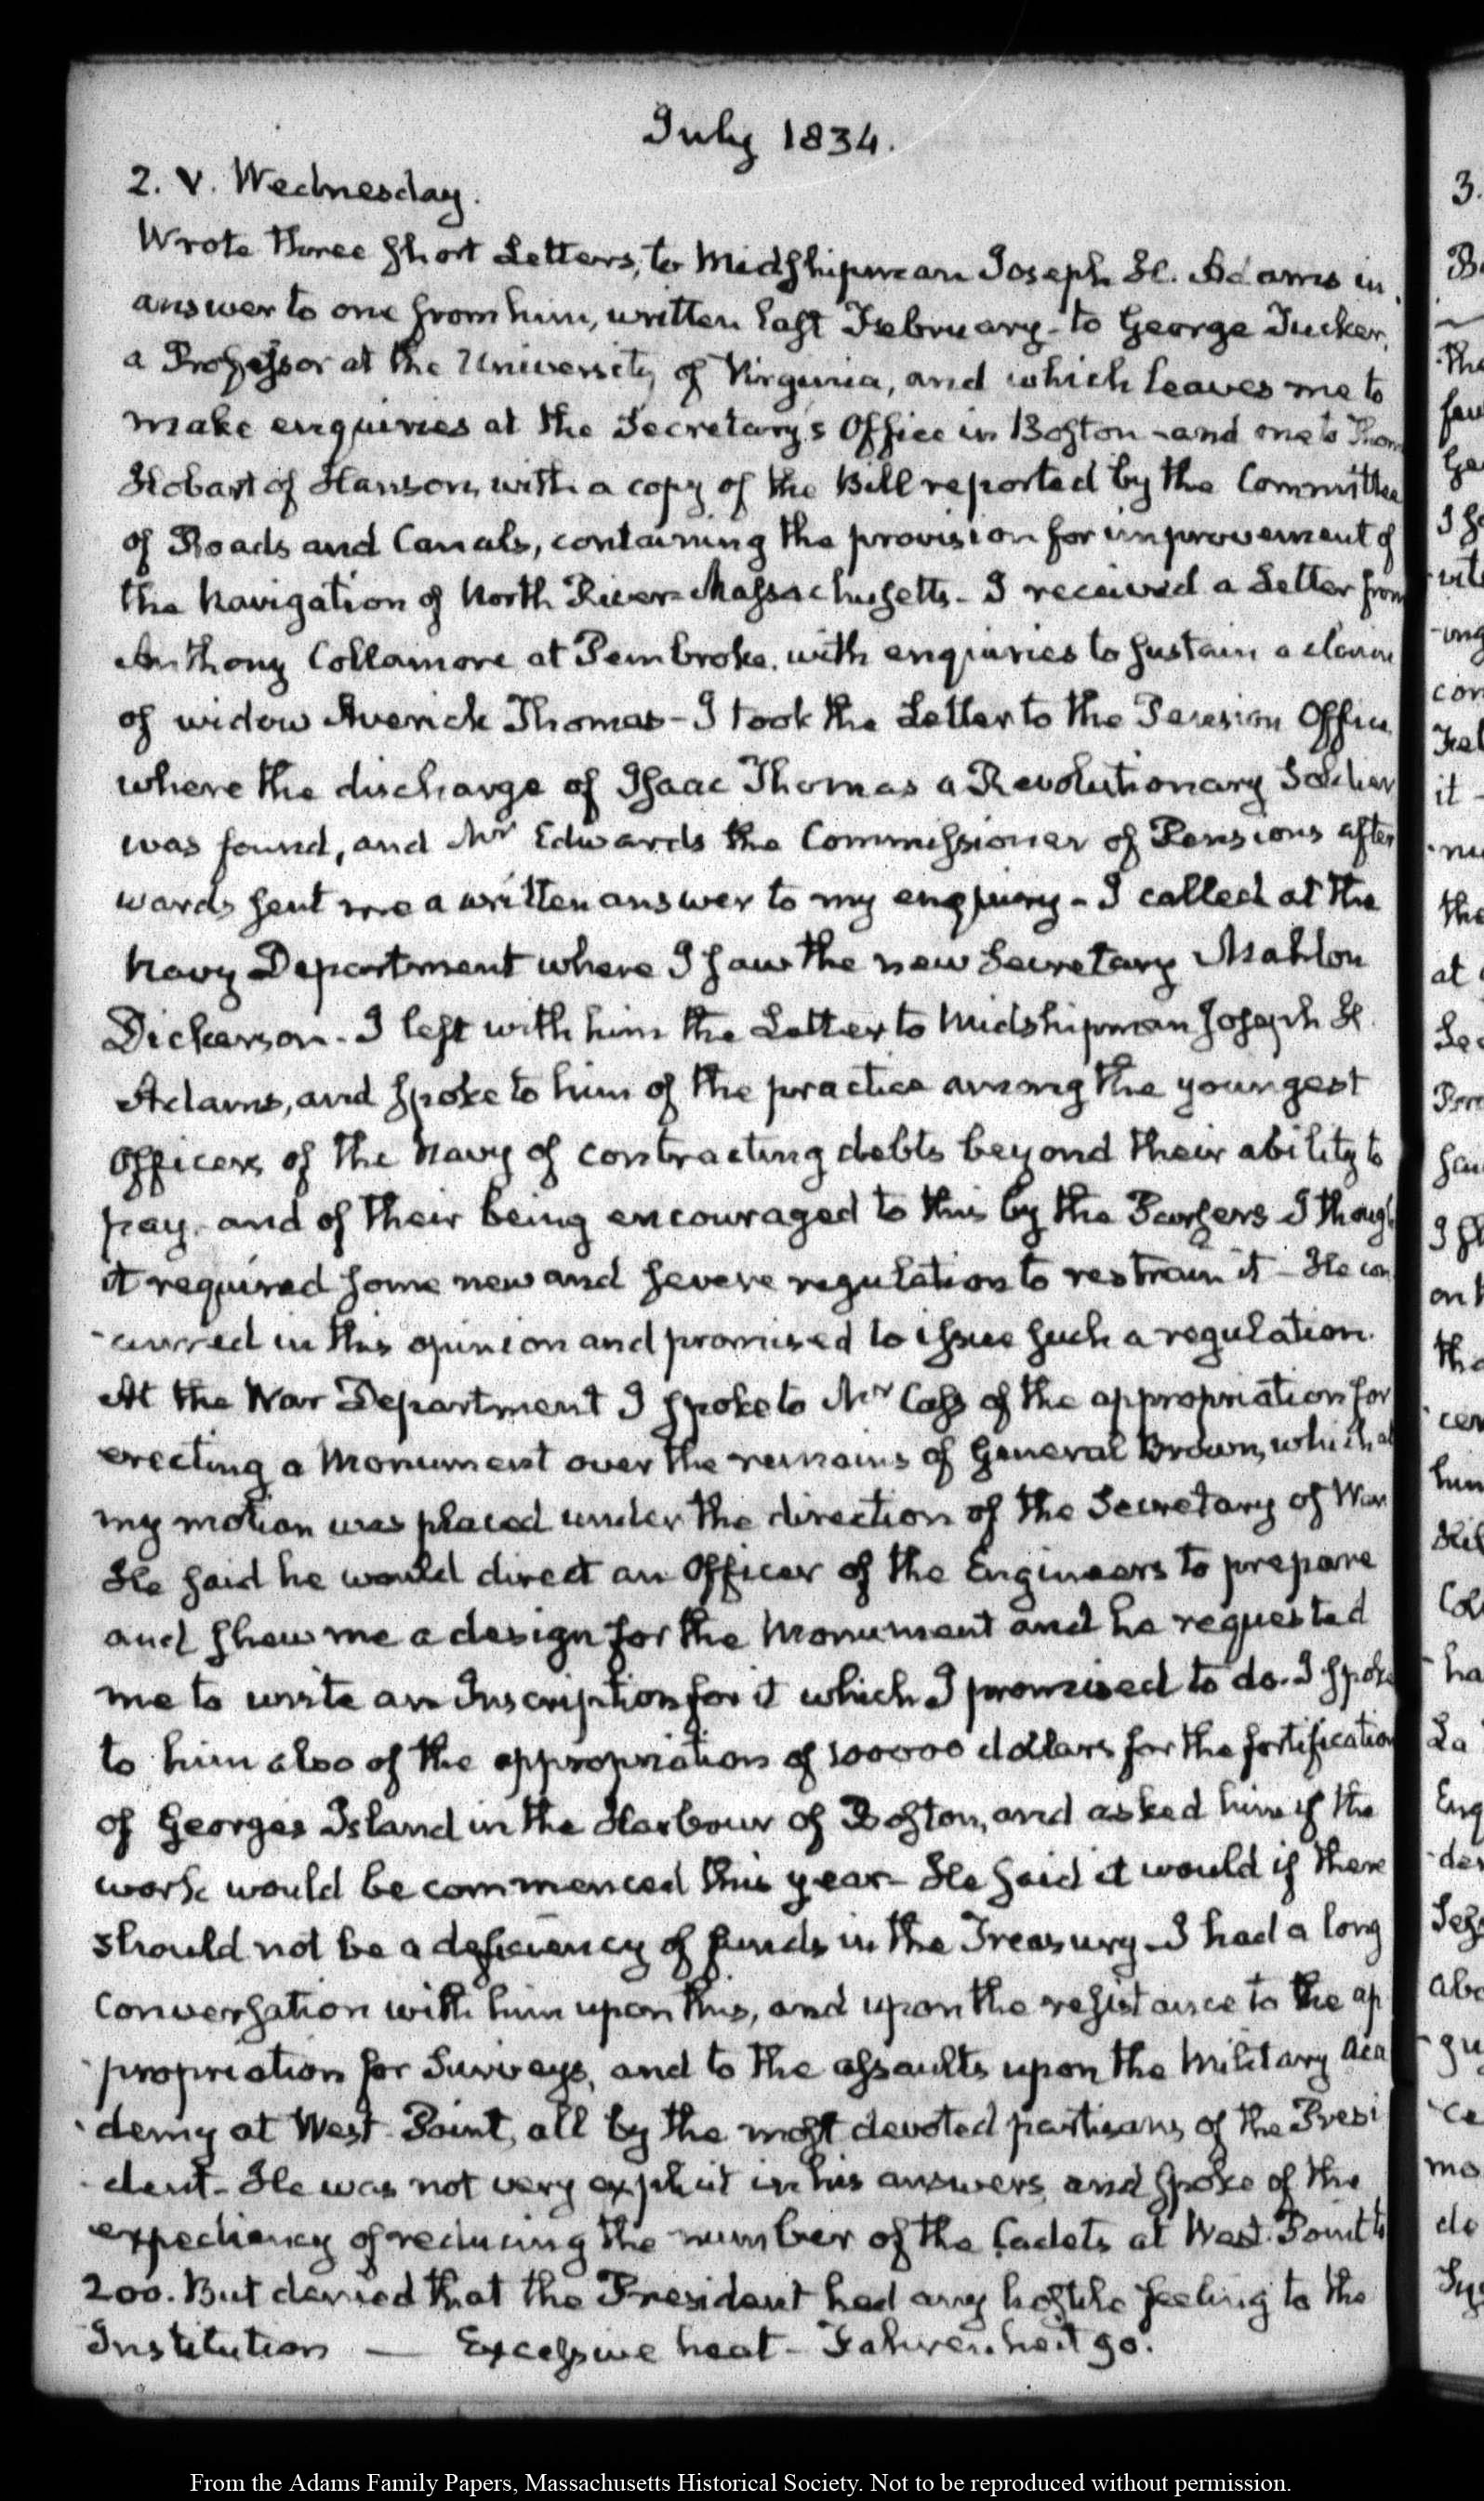 July 1834.
2. V. Wednesday.
Wrote three short Letters, to Midshipman Joseph H. Adams in
answer to one from him, written last February - to George Tucker,
a Professor at the University of Virginia, and which leaves me to
make enquiries at the Secretary's Office in Boston - and one to Thom
Hobart of Hanson, with a copy of the Bill reported by the Committee
of Roads and Canals, containing the provision for improvement of
the Navigation of North River Massachusetts - I received a Letter from
Anthony Collamore at Pembroke. with enquiries to sustain a claim
of widow Averick Thomas - I took the Letter to the Pension Office
where the discharge of Isaac Thomas a Revolutionary Soldier
was found, and Mr Edwards the Commissioner of Pensions after
wards sent me a written answer to my enquiry - I called at the
Navy Department where I saw the new Secretary Mahlon
Dickerson - I left with him the Letter to Midshipman Joseph H.
Adams, and spoke to him of the practice among the youngest
Officers of the Navy of contracting debts beyond their ability to
pay, and of their being encouraged to this by the Pursers - I though
it required some new and severe regulation to restrain it - He con
-curred in this opinion and promised to issue such a regulation.
At the War Department I spoke to Mr Cass of the appropriation for
erecting a Monument over the remains of General Brown, which at
my motion was placed under the direction of the Secretary of War
He said he would direct an Officer of the Engineers to prepare
and shew me a design for the Monument and he requested
me to write an Inscription for it which I promised to do. I spoke
to him also of the appropriation of 100000 dollars for the fortification
of Georges Island in the Harbour of Boston, and asked him if the
work would be commenced this year - He said it would if there
should not be a deficiency of funds in the Treasury - I had a long
Conversation with him upon this, and upon the resistance to the ap
-propriation for Surveys, and to the assaults upon the Military Aca
-demy at West-Point, all by the most devoted partisans of the Presi
-dent - He was not very explicit in his answers, and spoke of the
expediency of reducing the number of the Cadets at West-Point to
200. But denied that the President had any hostile feeling to the
Institution — Excessive heat - Fahrenheit 90.
3.
From the Adams Family Papers, Massachusetts Historical Society. Not to be reproduced without permission.